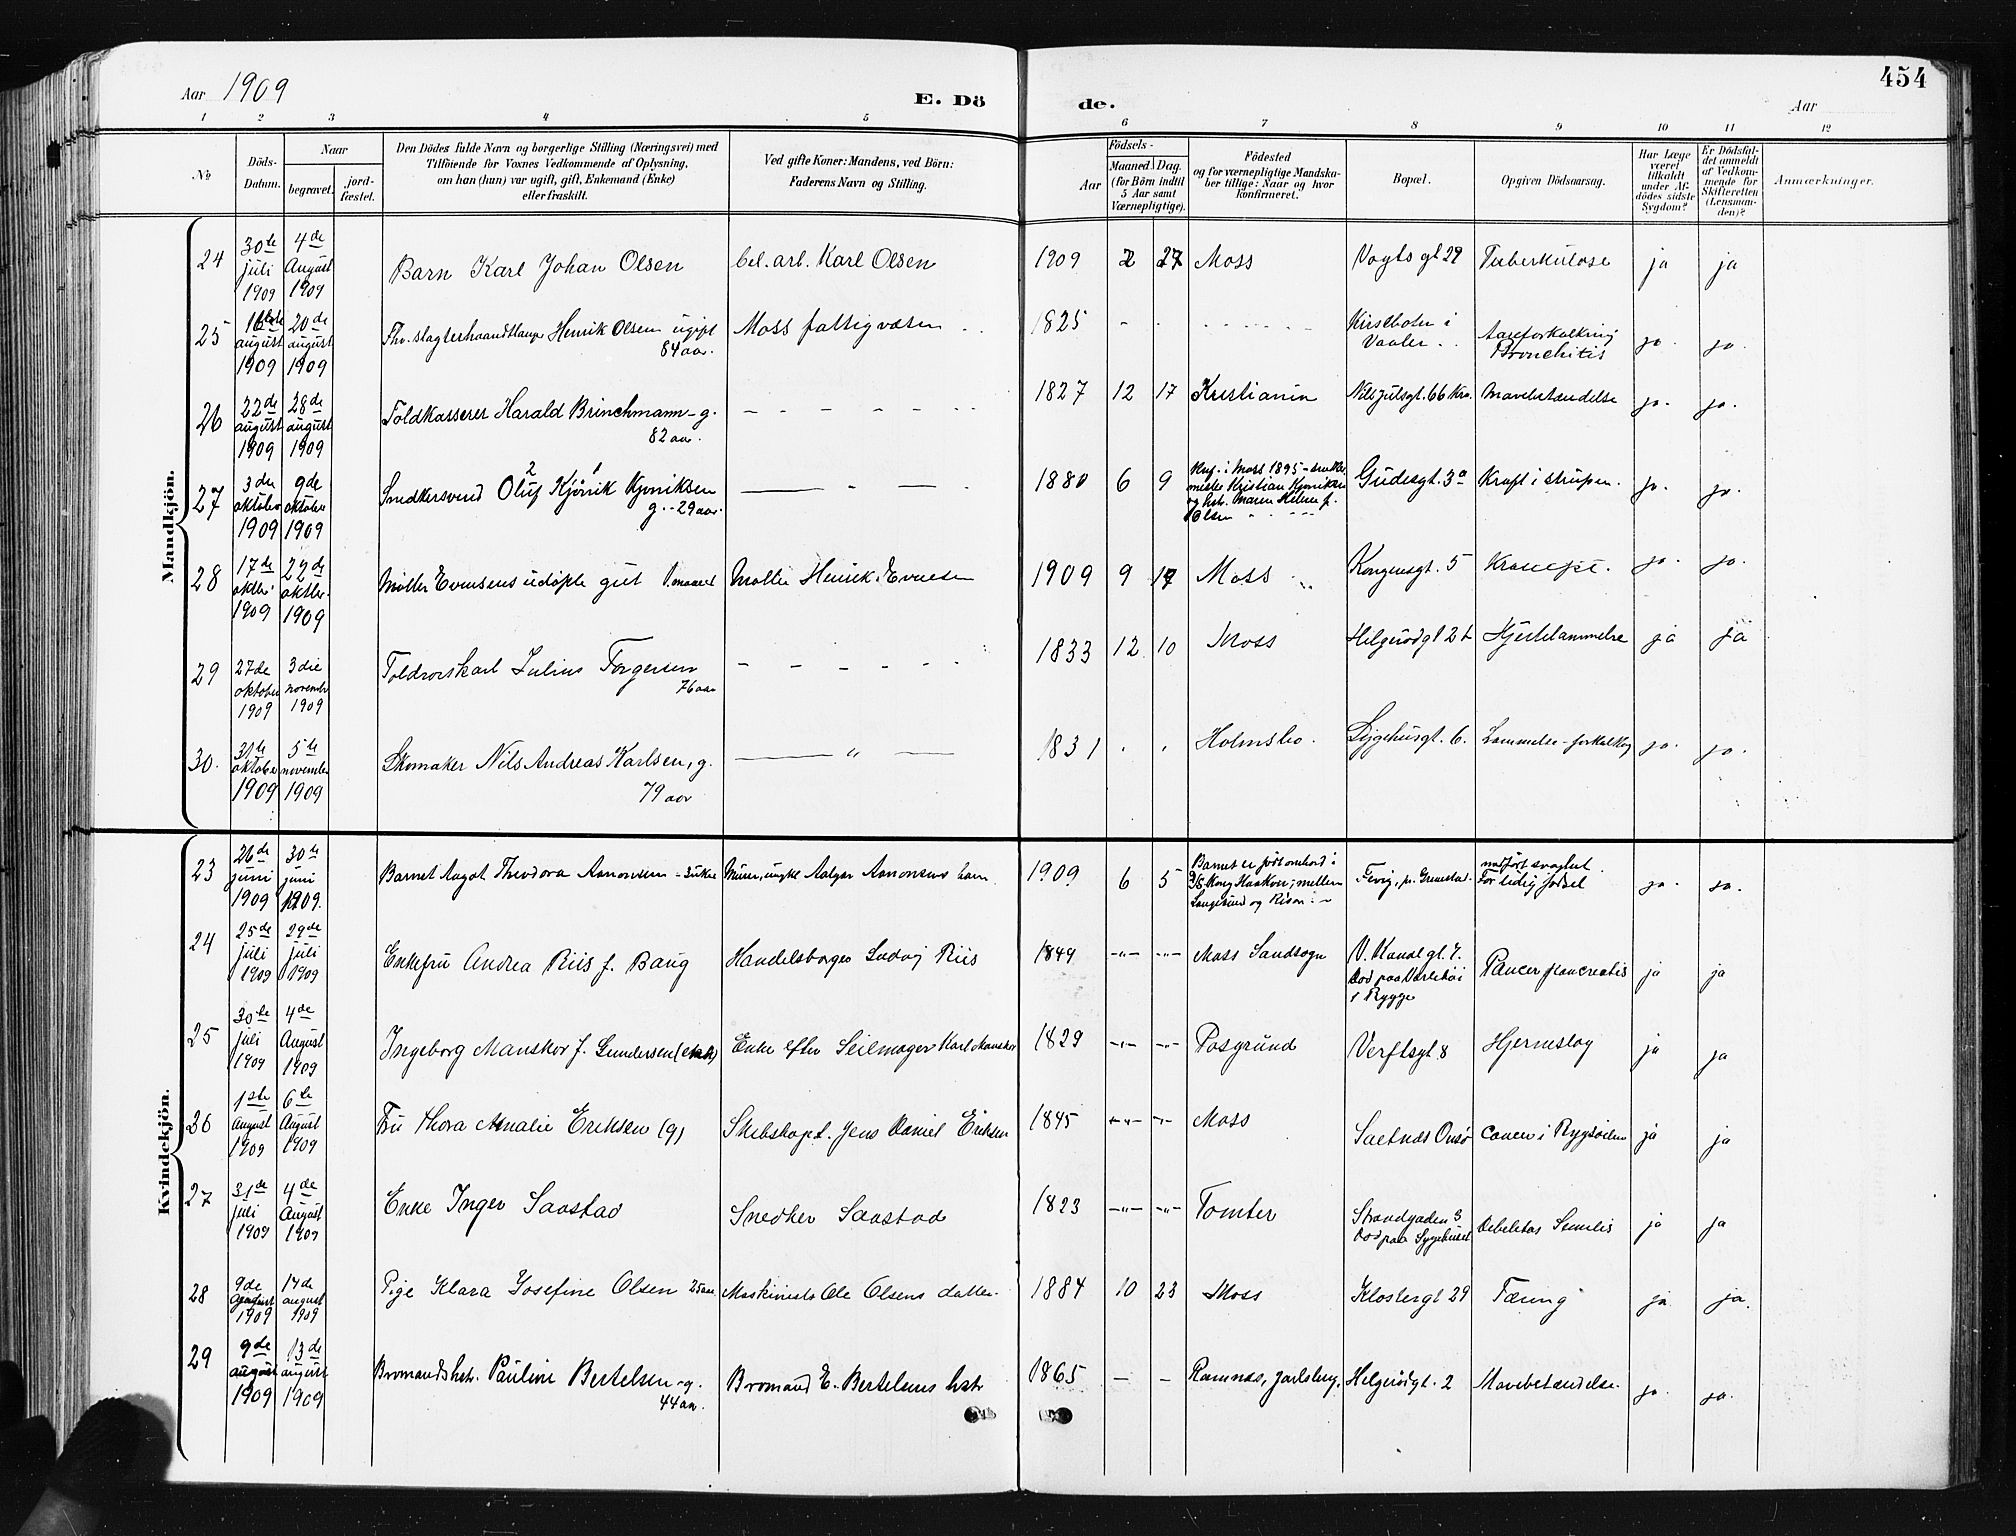 454
Aar 1909
E. Dö
de.
Aar
1 2 3 4 5 6 7 8 9 10 11 12
No
Döds-
Datum.
Naar
begravet.
jord-
fæstet.
Den Dödes fulde Navn og borgerlige Stilling (Næringsvei) med
Tilföiende for Voxnes Vedkommende af Oplysning,
om han (hun) var ugift, gift, Enkemand (Enke)
eller fraskilt.
Ved gifte Koner: Mandens, ved Börn:
Faderens Navn og Stilling.
Födsels-
Aar
Maaned. Dag.
(for Börn indtil
5 Aar samt
Værnepligtige).
Födested
og for værnepligtige Mandska-
ber tillige: Naar og hvor
konfirmeret.
Bopæl.
Opgiven Dödsaarsag.
Har Læge
været
tilkaldt
under Af-
dödes sidste
Sygdom?
Er Dödsfal-
det anmeldt
af Vedkom-
mende for
Skifteretten
(Lensman-
den)?
Anmærkninger.
Mandkjön.
24 30te juli 1909 4de August 1909 Barn Karl Johan Olsen bel. arb. Karl Olsen 1909 2 27 Moss Vogtsgt 29 Tuberkulose ja ja
25 16de august 1909 20de august 1909 Fhv. slagterhaandtlanger Henrik Olsen ugift Moss fattigvæsen 1825 - - Kirseboln i Vaaler Aareforkalkning Bronchitis ja. ja.
84 aar.
26 22de august 1909 28de august 1909 Toldkasserer Harald Brinchmann - g. - - - - 1827 12 17 Kristiania Nils Juelsgt. 66 Kra. Mavebetændelse ja. ja.
82 aar.
27 3die oktober 1909 9de oktober 1909 Snedkersvend Oluf Kjönik Kjoniksen — " — 1880 6 9 Knf. i Moss 1895 - snekkermester Kristian Kjoniksen og hst. Maren Helene f. Olsen Gudesgt. 3a Kræft i strupen. ja. ja.
g. - 29 aar.
28 17de oktbr. 1909 22de oktbr. 1909 Møller Evensens udøpte gut 1. maaned Møller Henrik Evensen 1909 9 17 Moss Kongensgt. 5 Krampe. ja. ja.
29 27de oktober 1909 3die november 1909 Toldrorskarl Julius Torgersen - - - - 1833 12 10 Moss Helgerødgt 2b Hjertelammelse ja ja
76 aar
30. 31te oktober 1909 5te november 1909 Skomaker Nils Andreas Karlsen, g. — " — 1831 " " Holmsbo. Sygehusgt. 6. Lammelse - forkalkng ja. ja.
79 aar
Kvindekjön.
23 26de juni 1909 30te juni 1909. Barnet Aagot Theodora Aanonsen - 3 uker Murer, ungkl Aalger Aanonsens barn 1909 6 5 Barnet er født ombord i D/S Kong Haakon; mellem Langesund og Risør Fevig, pr. Grimstad. medført svaghet. For tidig fødsel ja. ja.
24 25de juli 1909 29de juli 1909 Enkefru Andrea Riis f. Baug Handelsborger Ludvig Riis 1849 -"- -"- Moss Landsogn V. Kanalgt. 7. død paa Værlebøi i Rygge Cancer pancreatis ja ja
25 30te juli 1909 4de August 1909 Ingeborg Manskor f. Gundersen (enke) Enke efter Seilmager Karl Manskor 1829 -"- -"- Posgrund Verftsgt 8 Hjerneslag ja ja
26 1ste August 1909 6te August 1909 Fru Thora Amalie Eriksen (g) Skibskapt. Jens Daniel Eriksen 1845 -"- -"- Moss Saltnes Onsø Cancer i Rygsøilen ja ja
27 31de juli 1909 4de August 1909 Enke Inger Saastad Snedker Saastad 1823 -"- -"- Tomter Strandgaden 3 død paa Sygehuset Debilitas Senilis ja ja
28 9de august 1909 14de august 1909 Pige Klara Josefine Olsen 25 aar Maskinists Ole Olsens datter. 1884 10 23 Moss Klostergt 29 Tæring ja ja.
29 9de august 1909 13de august 1909 Bromandshst. Pauline Bertelsen - g. Bromand E. Bertelsens hst 1865 — - Ramnæs, Jarlsberg, Helgerødgt. 2 Mavebetændelse. ja. ja.
44 aar.